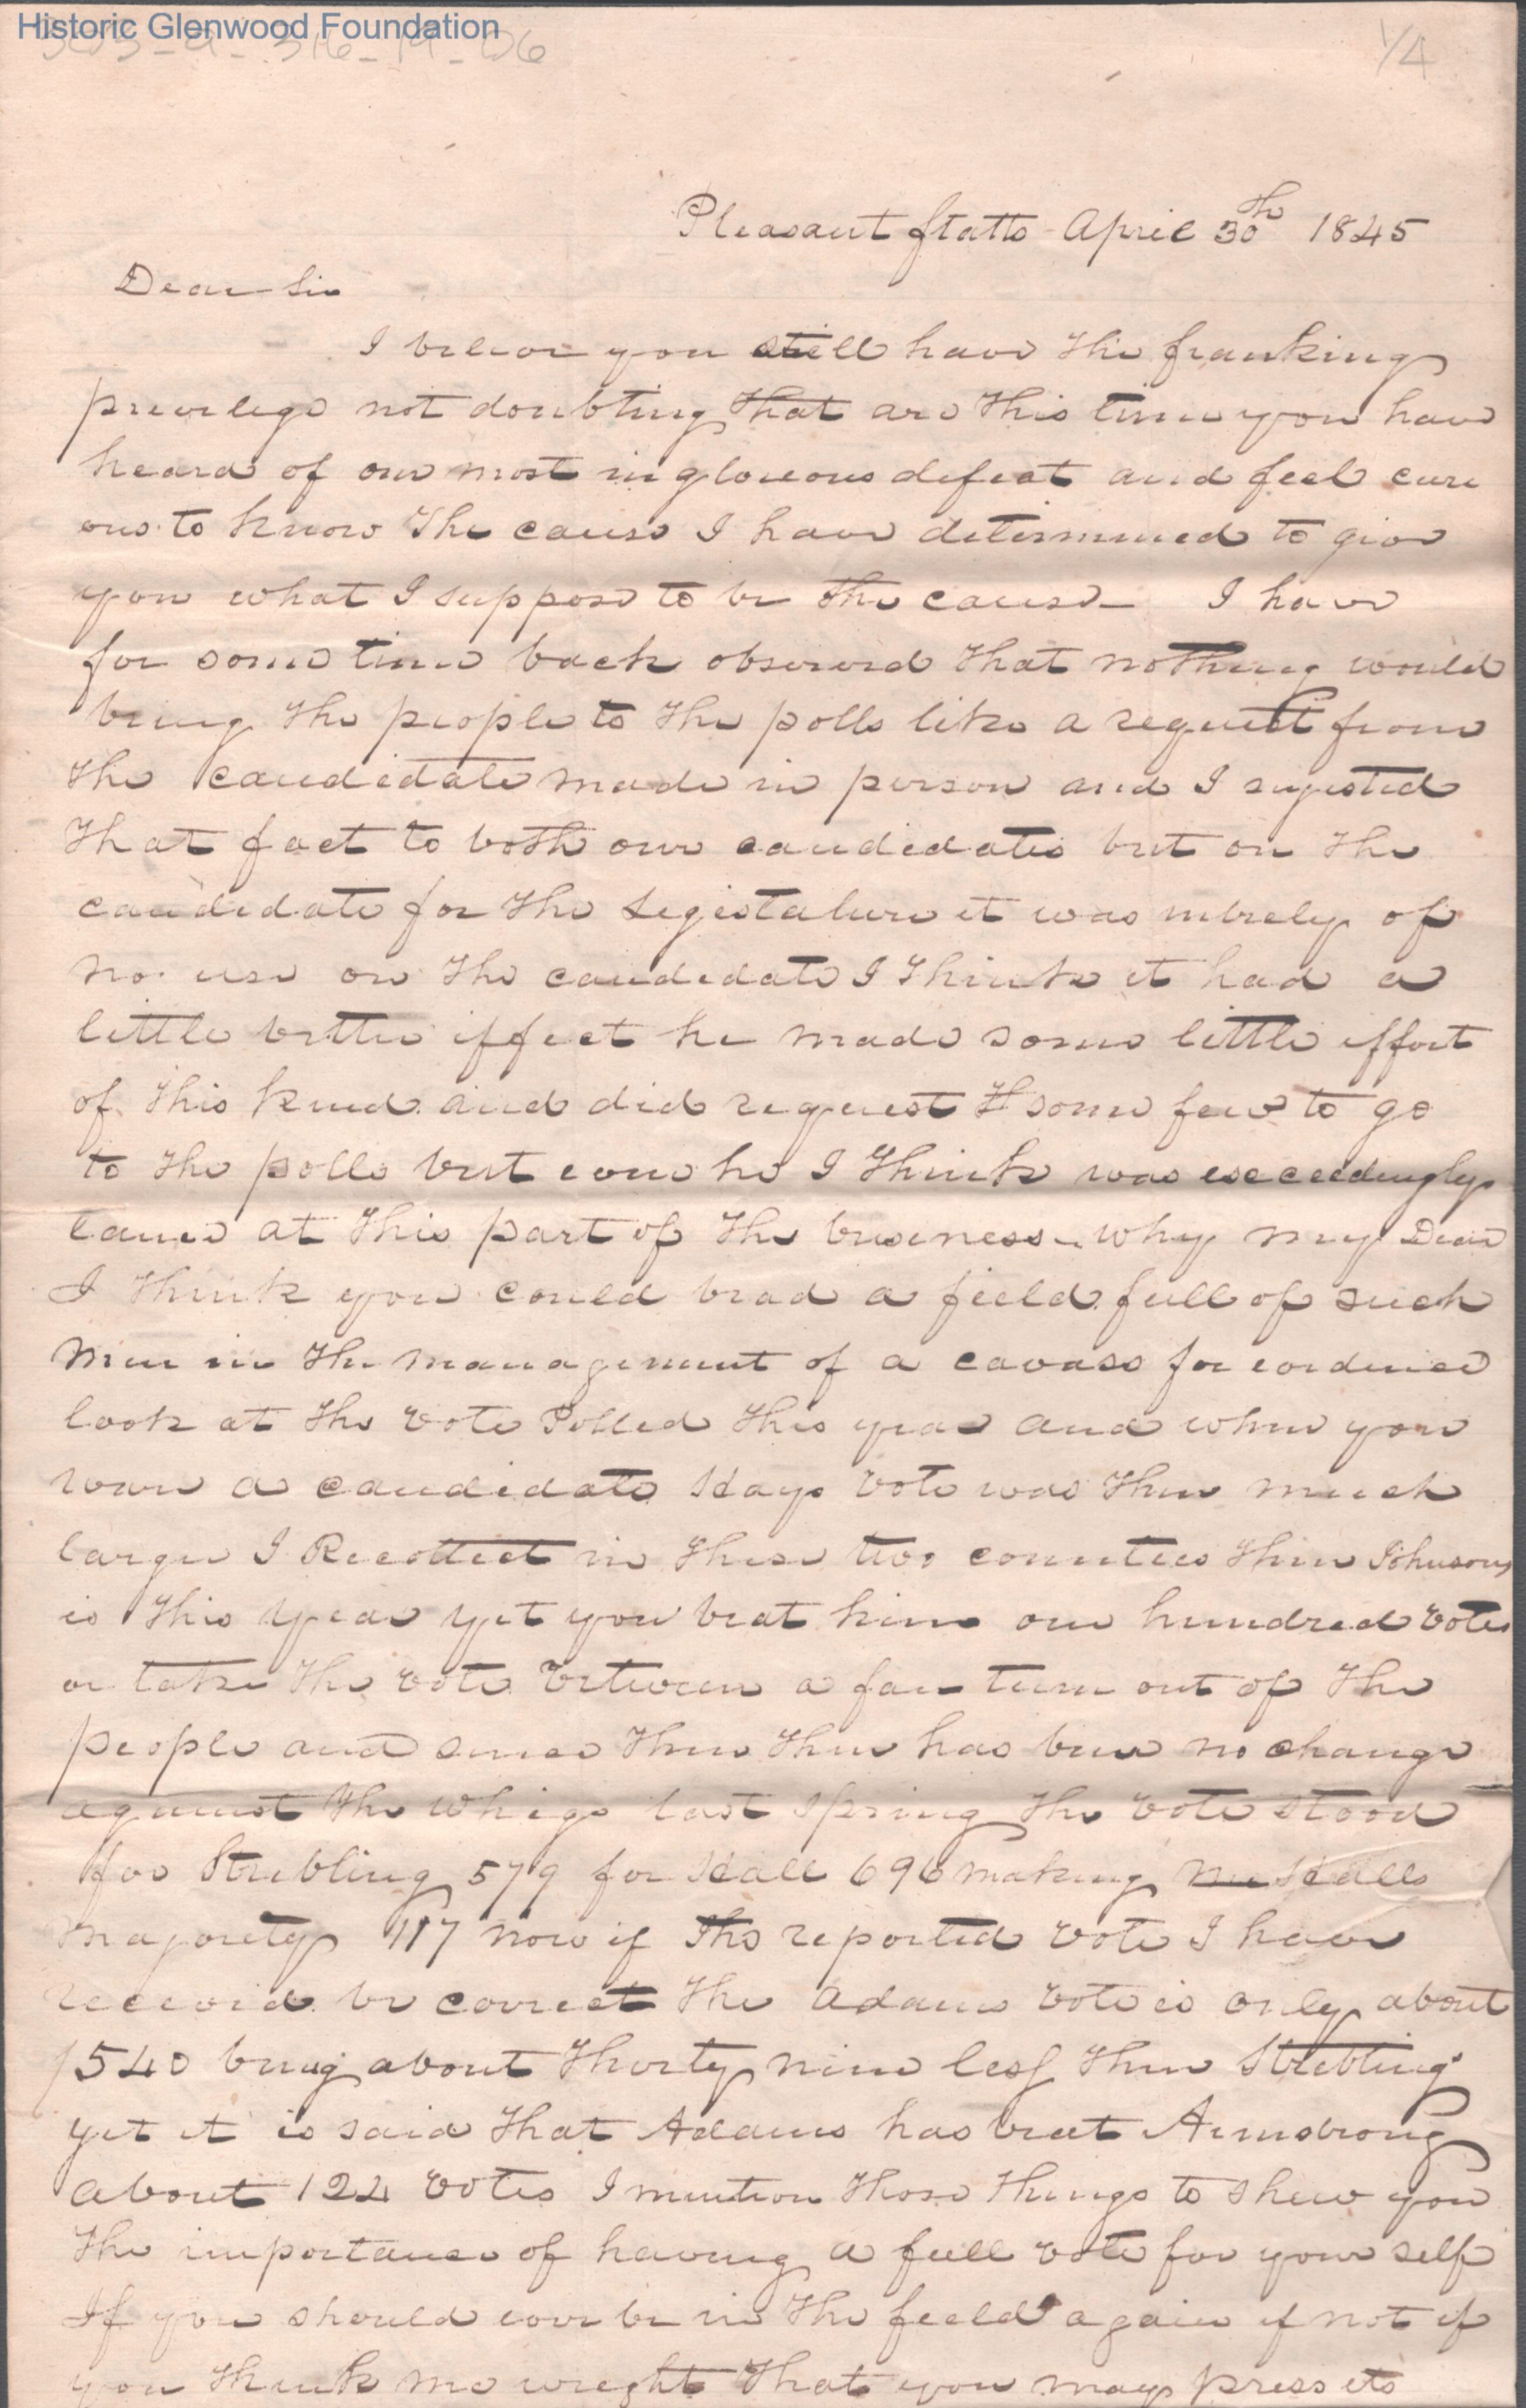 Historic Glenwood Foundation
1/4
Pleasant flatts April 30th 1845
Dear Sir
I beleve you still have the franking
prevelege not doubting that are this time you have
heard of our most ingloreous defeat and feel cure
ous to know the cause I have determined to give
you what I suppose to be the cause I have
for some time back observed that nothing would
bring the people to the polls like a request from
the candedate made in person and I sujested
that fact to both our candedates but on the
candedate for the Legestature it was merely of
no use on the candedate I think it had a
little better effect he made some little effort
of this kind and did request some few to go
to the polls but even he I think was exceedingly
lame at this part of the buseness why my Dear
I think you could beat a field full of such
men in the management of a cavass for evedence
look at the vote Polled this year and when you
ware a candedate Hays vote was then much
larger I Recollect in these two countees then Johnsons
is this year yet you beat him one hundred votes
or take the vote between a fair turn out of the
people and since then there has been no change
against the whigs last spring the vote stood
for Stribling 579 for Hall 696 making Halls
majorety 117 now if the reported vote I have
receved be correct the Adams vote is only about
540 being about Thirty nine less then Strebling
yet it is said that Adams has beat Armstrong
about 122 votes I mention those things to shew you
the importance of having a full vote for your self
If you should ever be in the feeld again if not if
you think me wreght that you may press its